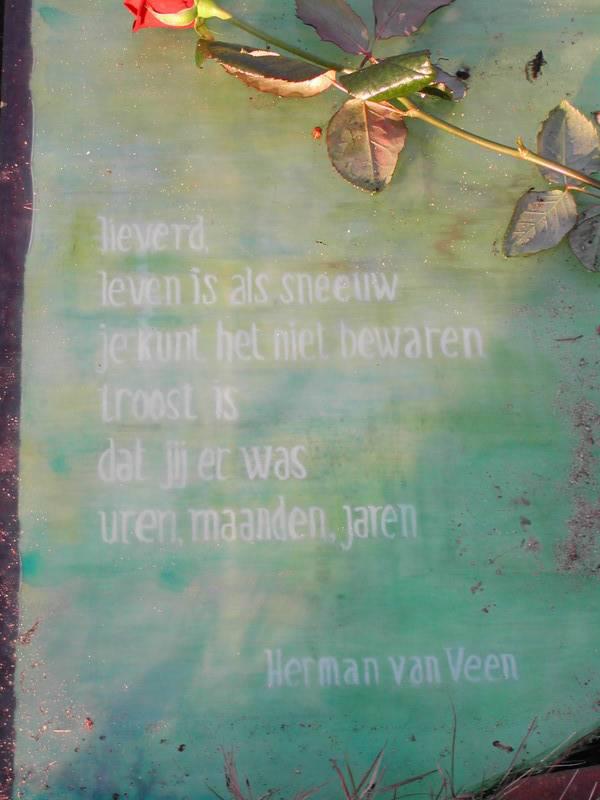 lieverd,
leven is als sneeuw
je kunt het niet bewaren
troost is
dat jij er was
uren, maanden, jaren
Herman van Veen